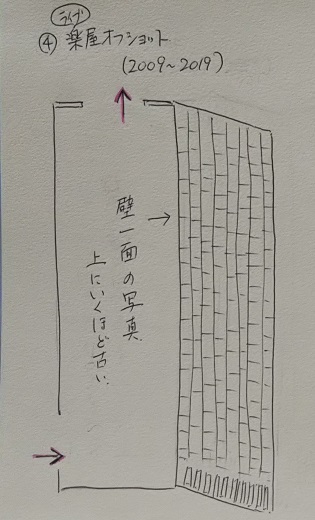 ライブ
④ 楽屋オフショット
(2009～2019)
壁一面の写真
上にいくほど古い.